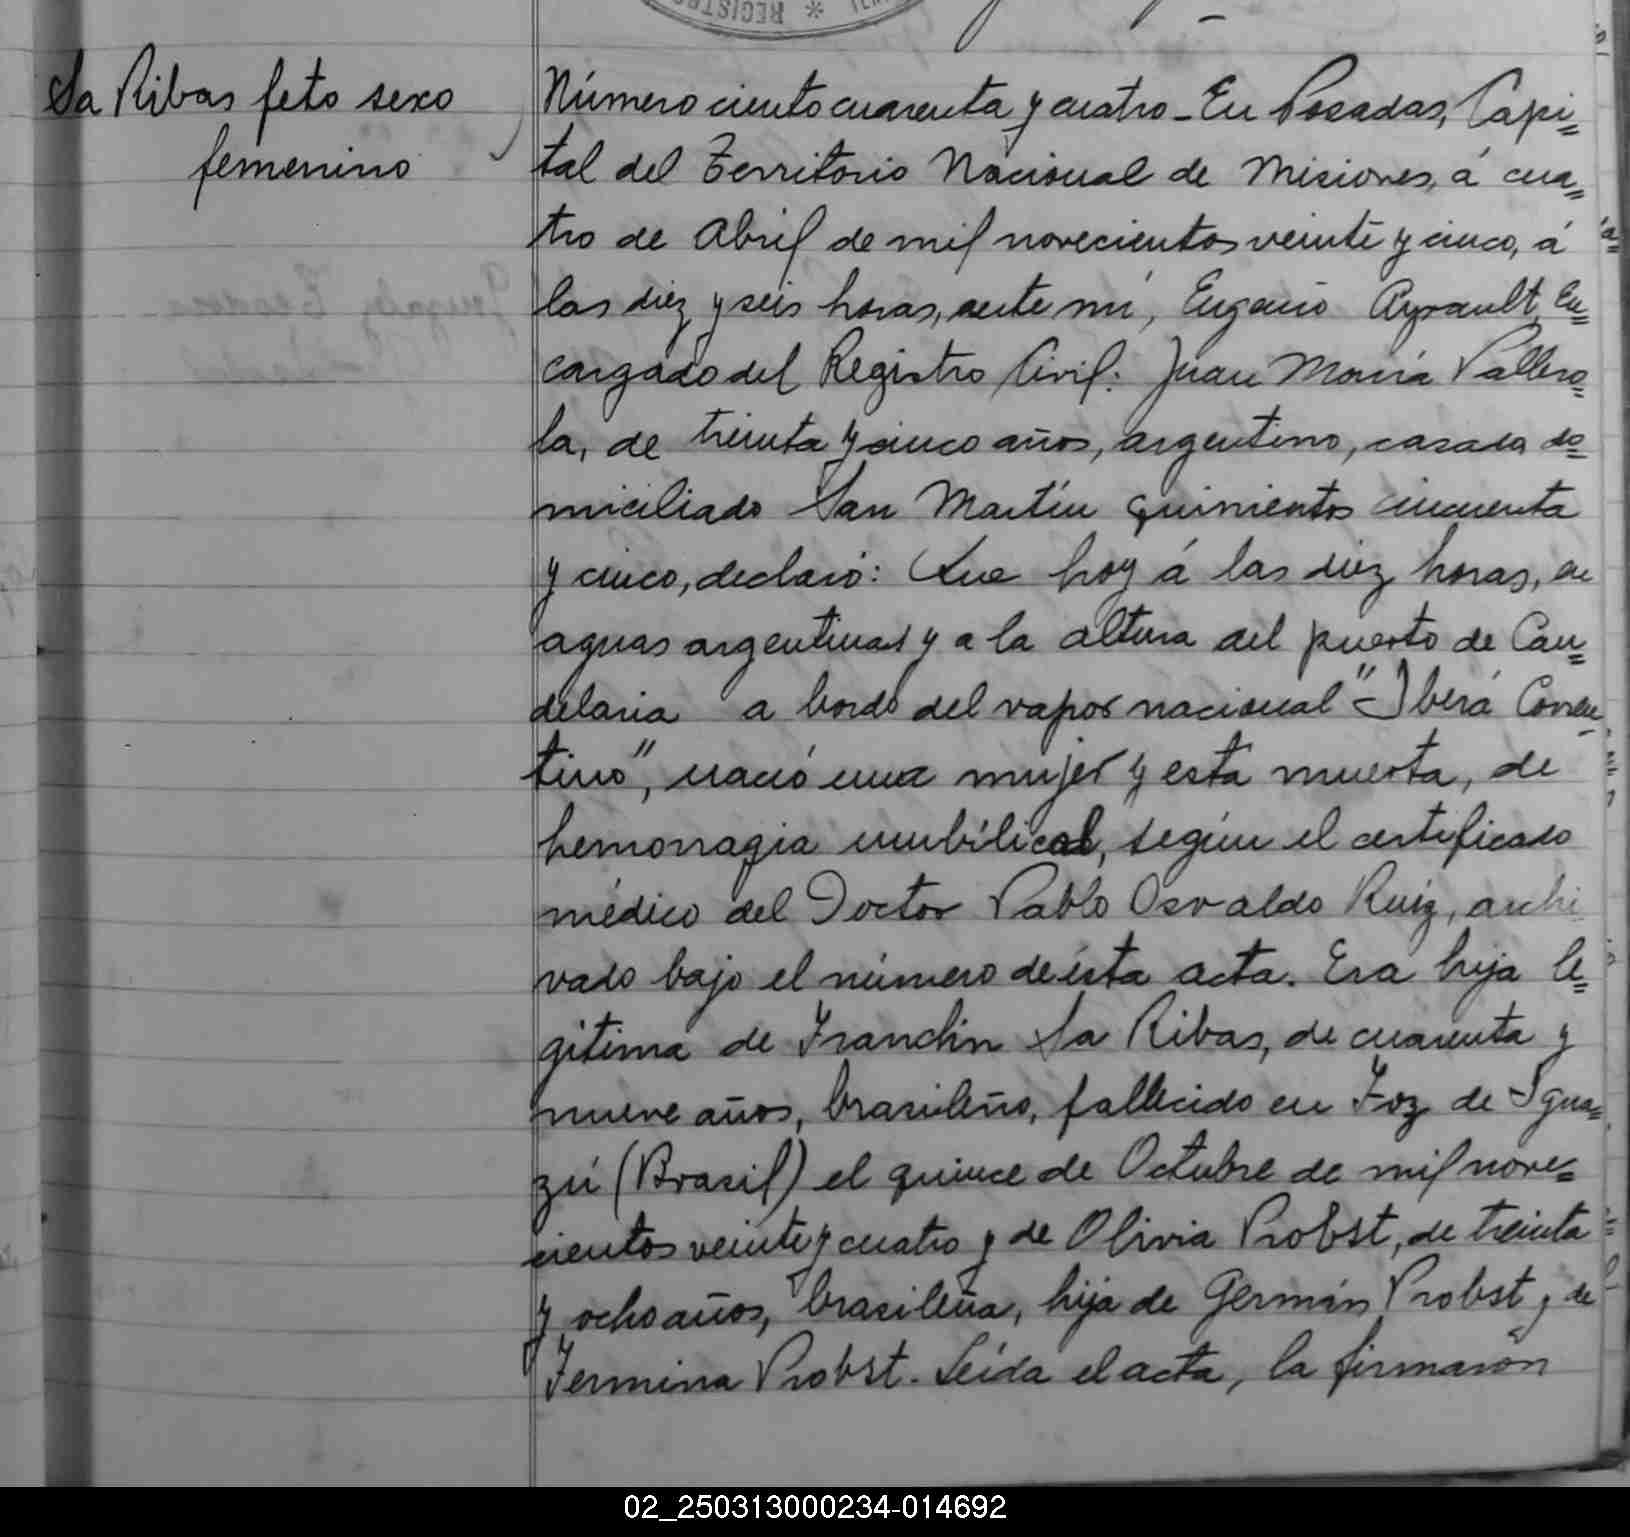 REGISTRO
Sa Ribas feto sexo
femenino
Número ciento cuarenta y cuatro - En Posadas, Capi=
tal del Territorio Nacional de Misiones, á cua=
tro de Abril de mil novecientos veinte y cinco, á
las diez y seis horas, ante mi, Eugenio Ayrault, En=
cargado del Registro Civil: Juan María Vallero=
la, de treinta y cinco años, argentino, casado do=
miciliado San Martín quinientos cincuenta
y cinco, declaró: Que hoy á las diez horas, en
aguas argentinas y a la altura del puerto de Can=
delaria a bordo del vapor nacional "Iberá Corren
tino", nació una mujer y esta muerta, de
hemorragia umbilical, según el certificado
médico del Doctor Pablo Osvaldo Ruiz, archi
vado bajo el número de ésta acta. Era hija le=
gitima de Franclin Sa Ribas, de cuarenta y
nueve años, brasileño, fallecido en Foz de Igua=
zú (Brasil) el quince de Octubre de mil nove=
cientos veinte y cuatro y de Olivia Probst, de treinta
y ocho años, brasileña, hija de Germán Probst y de
Fermina Probst. Leída el acta, la firmaron
02_250313000234-014692